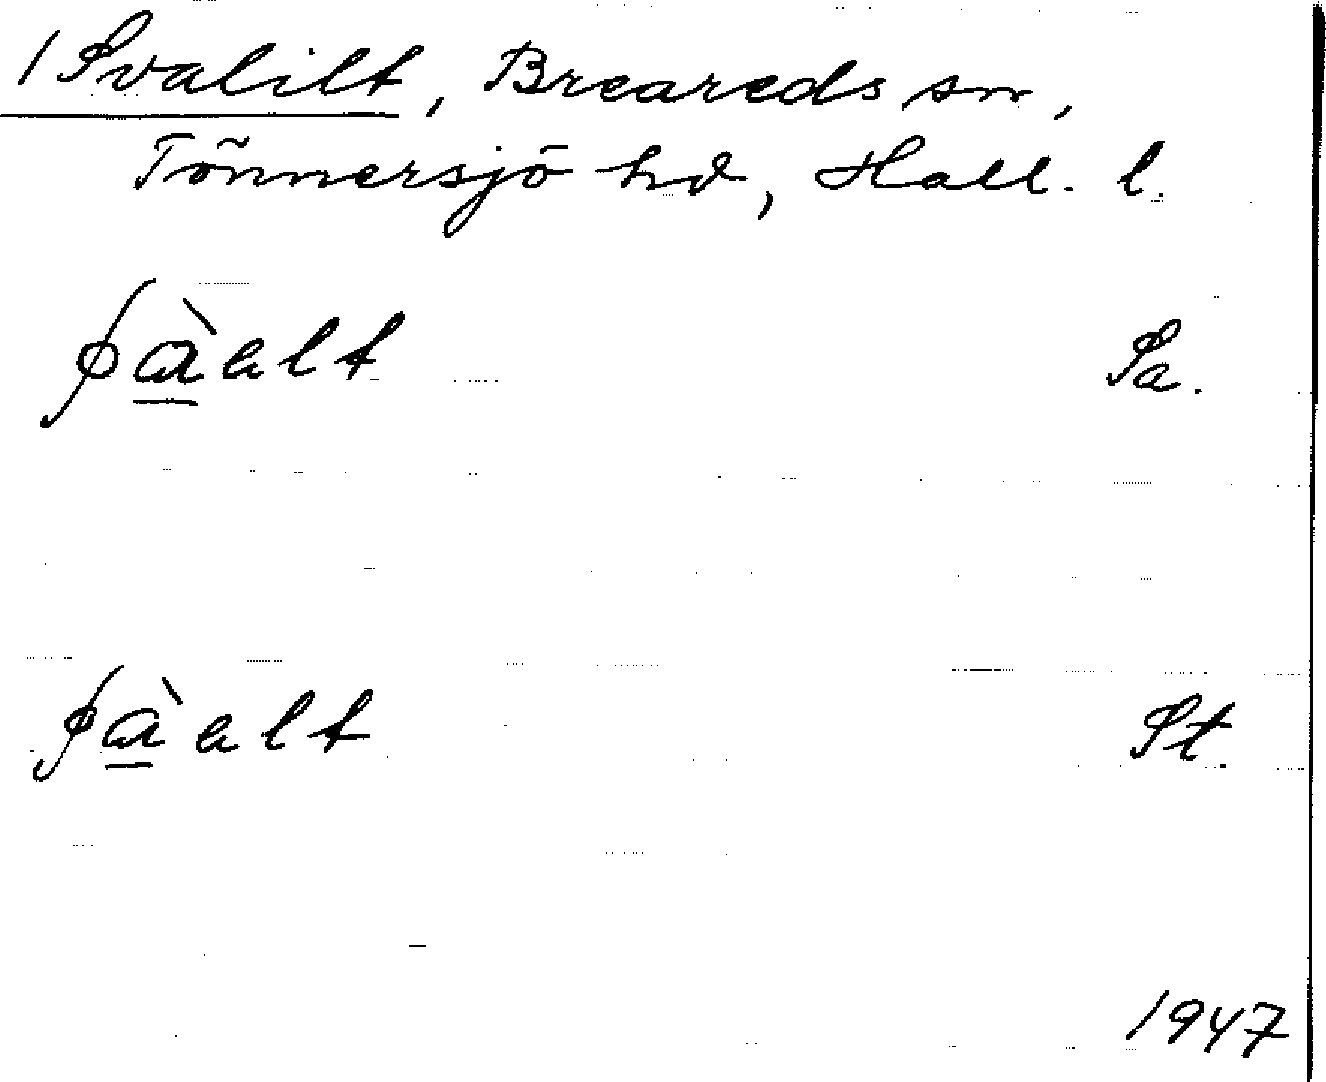 1 Svalilt, Breareds sn,
Tönnersjö hd, Hall. l.
Sa.
St.
1947